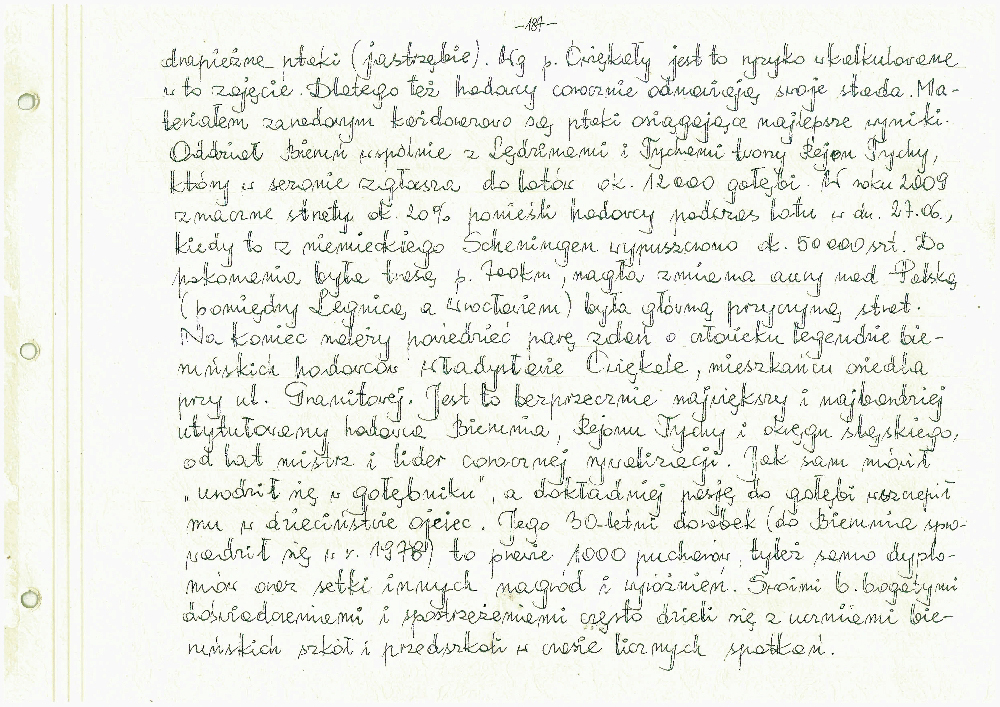 -187-
drapieżne ptaki (jastrzębie). Wg p. Ciękały jest to ryzyko wkalkulowane
w to zajęcie. Dlatego też hodowcy corocznie odnawiają swoje stada. Ma-
teriałem zarodowym każdorazowo są ptaki osiągające najlepsze wyniki.
Oddział Bieruń wspólnie z Lędzinami i Tychami tworzy Rejon Tychy,
który w sezonie zgłasza do lotów ok. 12000 gołębi. W roku 2009
znaczne straty ok. 20% ponieśli hodowcy podczas lotu w dn. 27.06.,
kiedy to z niemieckiego Scheningen wypuszczono ok. 50000 szt. Do
pokonania była trasa p. 700km, nagła zmiana aury nad Polską
(pomiędzy Legnicą a Wrocławiem) była główną przyczyną strat.
Na koniec należy powiedzieć parę zdań o człowieku legendzie bie-
ruńskich hodowców Władysławie Ciękale, mieszkańcu osiedla
przy ul. Granitowej. Jest to bezprzecznie największy i najbardziej
utytułowany hodowca Bierunia, Rejonu Tychy i okręgu śląskiego,
od lat mistrz i lider corocznej rywalizacji. Jak sam mówił
„urodził się w gołębniku", a dokładniej pasję do gołębi wszczepił
mu w dzieciństwie ojciec. Jego 30-letni dorobek (do Bierunia spro-
wadził się w r. 1978) to prawie 1000 pucharów, tyleż samo dyplo-
mów oraz setki innych nagród i wyróżnień. Swoimi b. bogatymi
doświadczeniami i spostrzeżeniami często dzieli się z uczniami bie-
ruńskich szkół i przedszkoli w czasie licznych spotkań.